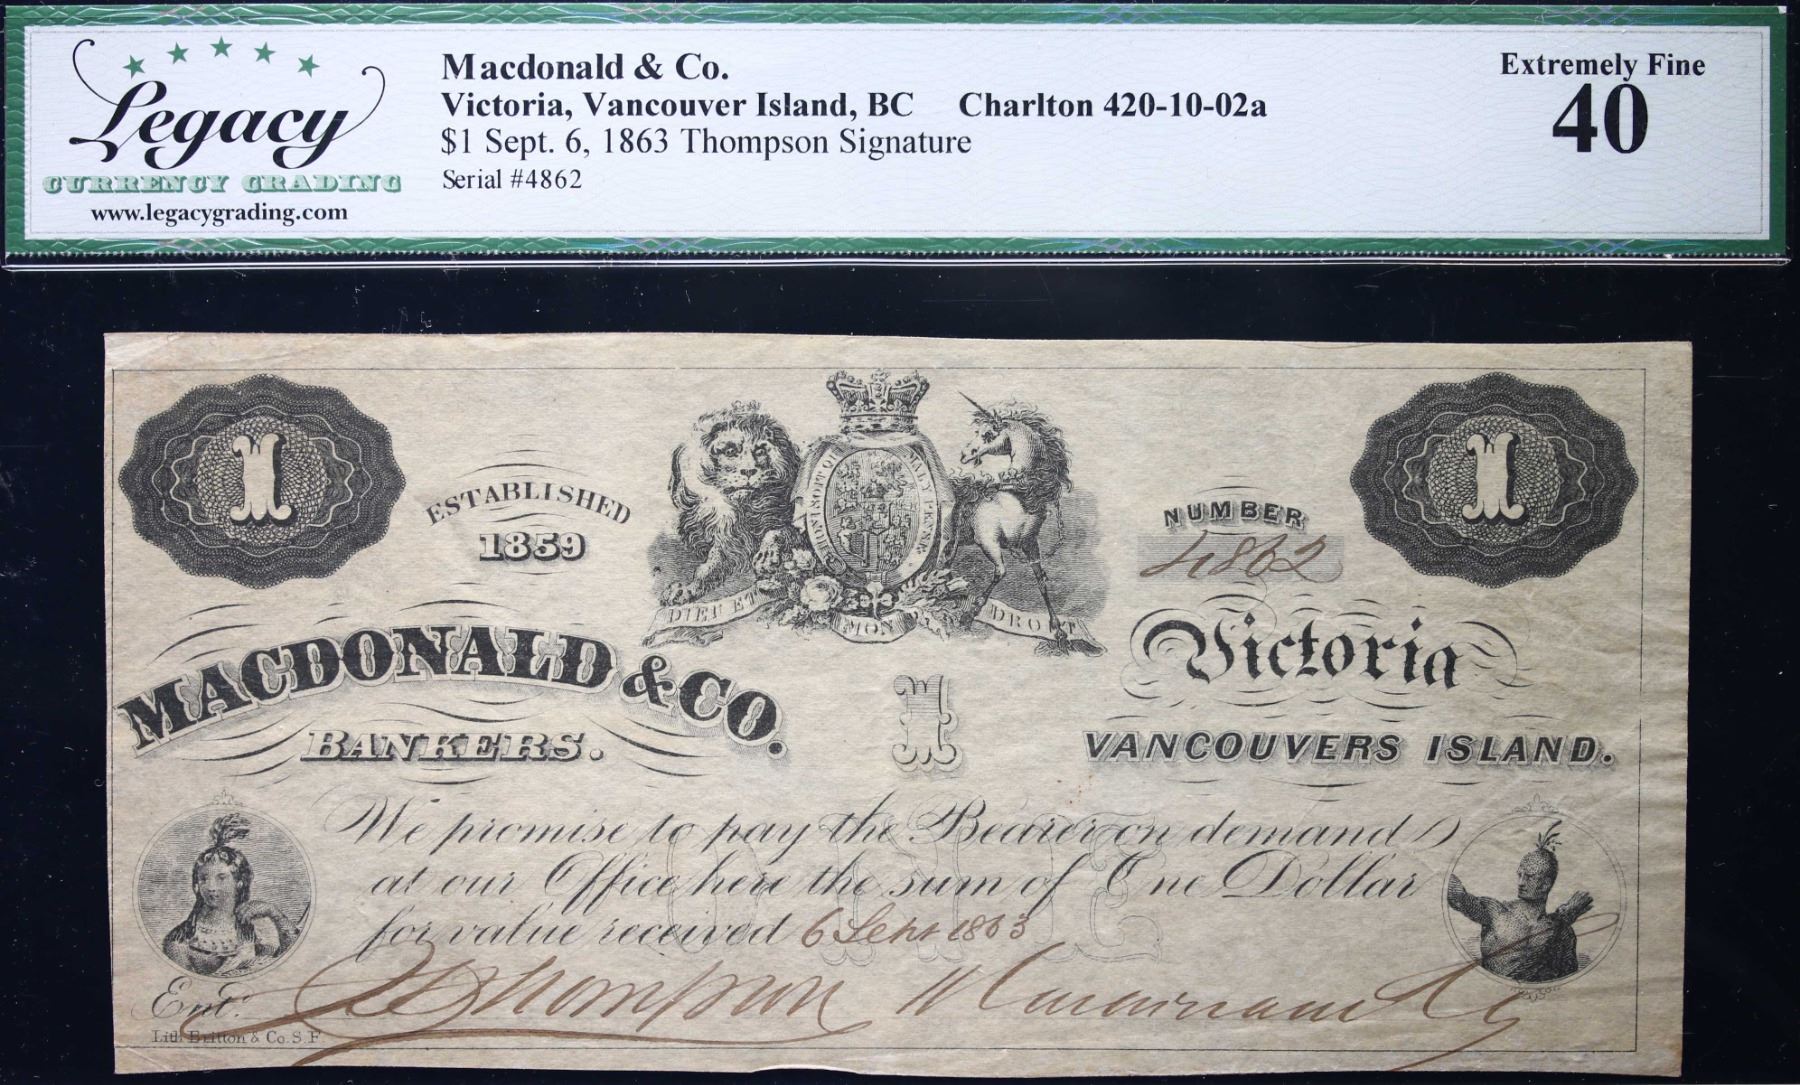 Legacy
CURRENCY GRADING
www.legacygrading.com
Macdonald & Co.
Victoria, Vancouver Island, BC Charlton 420-10-02a
$1 Sept. 6, 1863 Thompson Signature
Serial #4862
Extremely Fine
40
1
1
ESTABLISHED
1859
NUMBER
4862
HONI SOIT QUI MAL Y PENSE
DIEU ET MON DROIT
MACDONALD & CO.
BANKERS.
1
Victoria
VANCOUVERS ISLAND.
We promise to pay the Bearer on demand
at our Office here the sum of One Dollar
for value received 6 Sept 1863
Ent.d Thompson Macdonald & Co
Lith. Britton & Co. S.F.